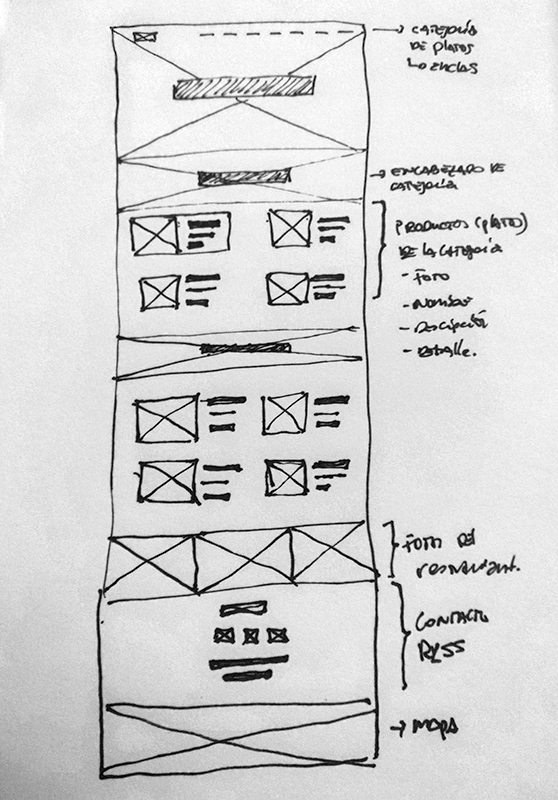 CATEGORÍA
DE PLATOS
ENCABEZADO DE
CATEGORÍA
PRODUCTOS (PLATO)
DE LA CATEGORÍA
- FOTO
- NOMBRE
- DESCIPCIÓN
- DETALLE.
FOTOS DEL
RESTAURANT.
CONTACTO
RRSS
→ MAPA